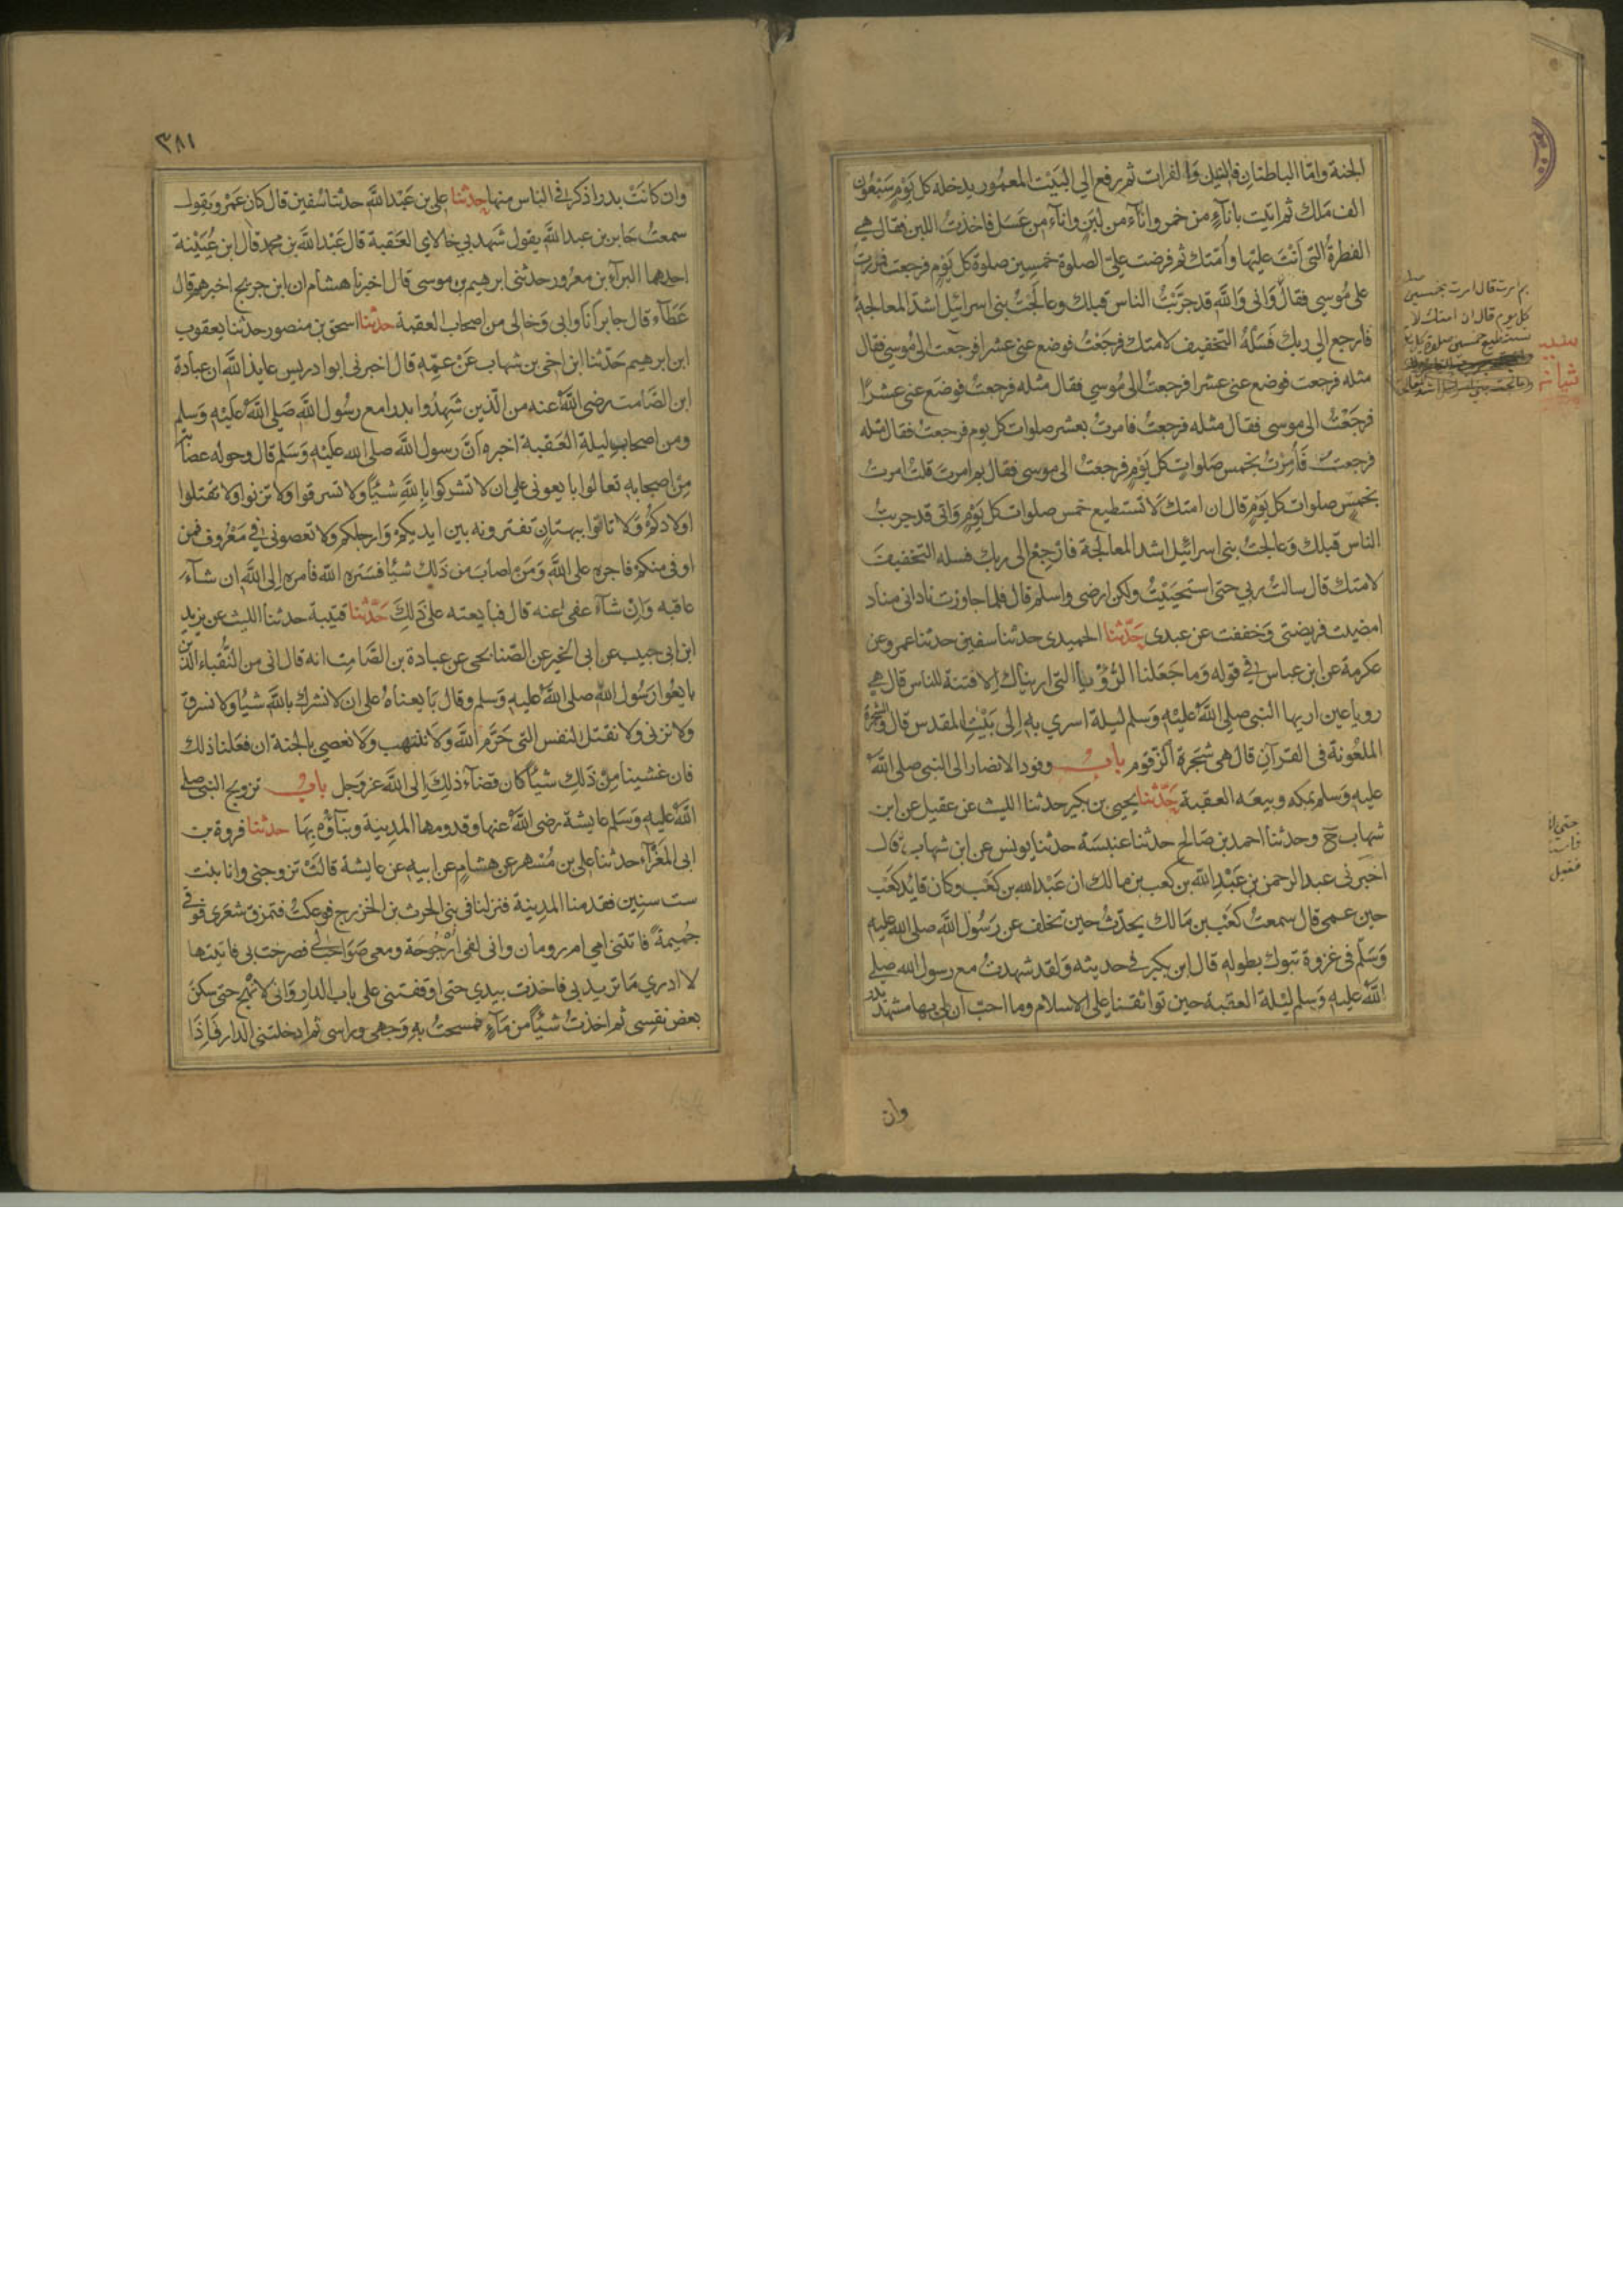 الجنة واما الباطنان فالنيل والفرات ثم رفع الي البيت المعمور يدخله كل يوم سبعون
الف ملك ثم اتيت باناء من خمر واناء من لبن واناء من عسل فاخذت اللبن فقال هي
الفطرة التي انت عليها وامتك ثم فرضت علي الصلوة خمسين صلوة كل يوم فرجعت فمررت
علي موسي فقال واني والله قد جربت الناس قبلك وعالجت بني اسرائيل اشد المعالجة
فارجع الي ربك فسله التخفيف لامتك فرجعت فوضع عني عشرا فرجعت الي موسي فقال
مثله فرجعت فوضع عني عشرا فرجعت الى موسي فقال مثله فرجعت فوضع عني عشرا
فرجعت الى موسى فقال مثله فرجعت فامرت بعشر صلوات كل يوم فرجعت فقال مثله
فرجعت فامرت بخمس صلوات كل يوم فرجعت الى موسي فقال بم امرت قلت امرت
بخمس صلوات كل يوم قال ان امتك لا تستطيع خمس صلوات كل يوم واني قد جربت
الناس قبلك وعالجت بني اسرائيل اشد المعالجة فارجع الى ربك فسله التخفيف
لامتك قال سالت ربي حتى استحييت ولكن ارضى واسلم قال فلما جاوزت ناداني مناد
امضيت فريضتي وخففت عن عبدي حدثنا الحميدى حدثنا سفين حدثنا عمرو عن
عكرمة عن ابن عباس في قوله وما جعلنا الرؤيا التي اريناك الا فتنة للناس قال هي
رويا عين اريها النبي صلي الله عليه وسلم ليلة اسري به الى بيت المقدس قال والشجرة
الملعونة في القرآن قال هى شجرة الزقوم باب وفود الانصار الى النبي صلى الله
عليه وسلم بمكه وبيعه العقبة حدثنا يحيى بن بكير حدثنا الليث عن عقيل عن ابن
شهاب ح وحدثنا احمد بن صالح حدثنا عنبسة حدثنا يونس عن ابن شهاب قال
اخبرني عبد الرحمن بن عبد الله بن كعب بن مالك ان عبد الله بن كعب وكان قايد كعب
حين عمى قال سمعت كعب بن مالك يحدث حين تخلف عن رسول الله صلى الله عليه
وسلم في غزوة تبوك بطوله قال ابن بكير في حديثه ولقد شهدت مع رسول الله صلي
الله عليه وسلم ليلة العقبة حين تواثقنا علي الاسلام وما احب ان لي بها مشهد بدر
وان
بم امرت قال امرت بخمسين
كل يوم قال ان امتك لا
تستطيع خمسين صلوة كل يوم
٣٨١
وان كانت بدر اذكر في الناس منها حدثنا علي بن عبد الله حدثنا سفين قال كان عمرو يقول
سمعت جابر بن عبد الله يقول شهد بي خالاي العقبة قال عبد الله بن محمد قال ابن عيينة
احدهما البراء بن معرور حدثني ابرهيم بن موسى قال اخبرنا هشام ان ابن جريج اخبرهم قال
عطاء قال جابر انا وابى وخالى من اصحاب العقبة حدثنا اسحق بن منصور حدثنا يعقوب
ابن ابرهيم حدثنا ابن اخي بن شهاب عن عمه قال اخبرني ابو ادريس عايذ الله ان عبادة
ابن الصامت رضى الله عنه من الذين شهدوا بدرا مع رسول الله صلي الله عليه وسلم
ومن اصحابه ليلة العقبة اخبره ان رسول الله صلى الله عليه وسلم قال وحوله عصابة
من اصحابه تعالوا بايعوني علي ان لا تشركوا بالله شيئا ولا تسرقوا ولا تزنوا ولا تقتلوا
اولادكم ولا تاتوا ببهتان تفترونه بين ايديكم وارجلكم ولا تعصوني في معروف فمن
اوفى منكم فاجره على الله ومن اصاب من ذلك شيئا فستره الله فامره الى الله ان شاء
عاقبه وان شاء عفى عنه قال فبايعته على ذلك حدثنا قتيبة حدثنا الليث عن يزيد
ابن ابي حبيب عن ابي الخير عن الصنابحى عن عبادة بن الصامت انه قال انى من النقباء الذين
بايعوا رسول الله صلى الله عليه وسلم وقال بايعناه على ان لا نشرك بالله شيئا ولا نسرق
ولا نزني ولا نقتل النفس التى حرم الله ولا ننتهب ولا نعصي بالجنة ان فعلنا ذلك
فان غشينا من ذلك شيئا كان قضاء ذلك الى الله عز وجل باب تزويج النبي صلى
الله عليه وسلم عايشة رضى الله عنها وقدومها المدينة وبناؤه بها حدثنا فروة بن
ابى المغراء حدثنا علي بن مسهر عن هشام عن ابيه عن عايشة قالت تزوجني وانا بنت
ست سنين فقدمنا المدينة فنزلنا في بني الحرث بن الخزرج فوعكت فتمزق شعري فوفى
جميمة فاتتني امي ام رومان واني لفي ارجوحة ومعى صواحب لي فصرخت بي فاتيتها
لا ادري ما تريد بي فاخذت بيدي حتى اوقفتني على باب الدار واني لانهج حتى سكن
بعض نفسي ثم اخذت شيئا من ماء فمسحت به وجهي وراسي ثم ادخلتني الدار فاذا